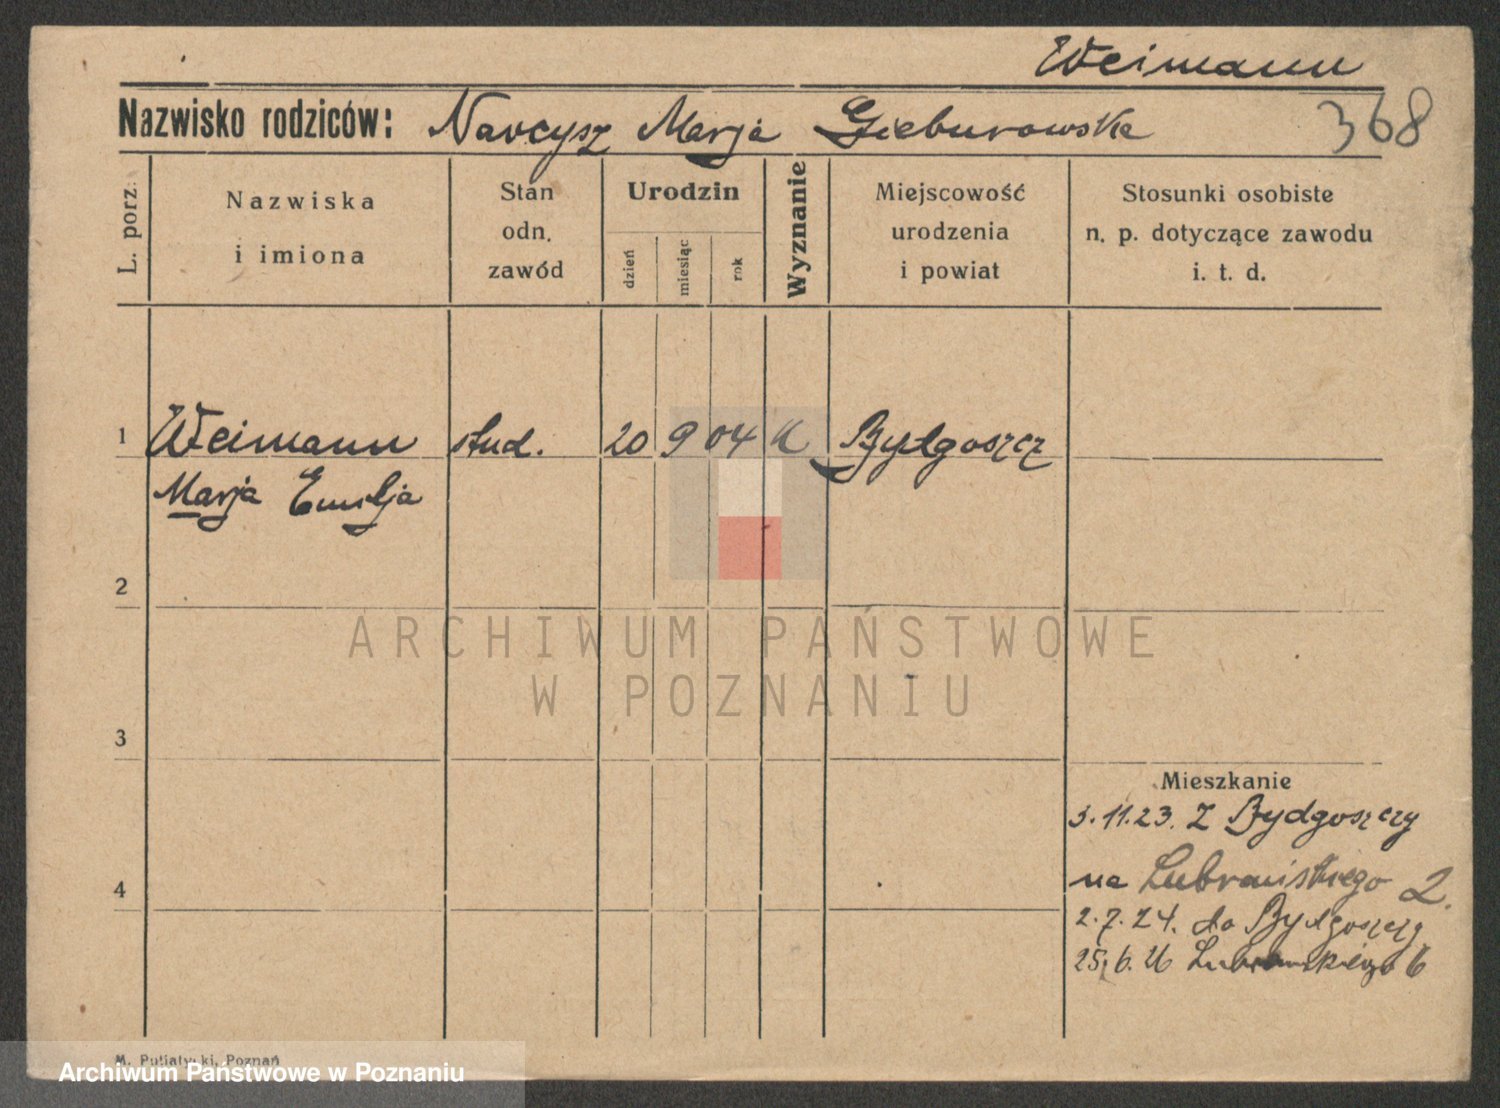 Weimann
Nazwisko rodziców: Narcysz Marja Gieburowska 368
L. porz. Nazwiska i imiona Stan odn. zawód Urodzin dzień miesiąc rok Wyznanie Miejscowość urodzenia i powiat Stosunki osobiste n. p. dotyczące zawodu i. t. d.
1 Weimann stud. 20 9 04 K Bydgoszcz
Marja Emilja
2
ARCHIWUM PAŃSTWOWE
W POZNANIU
3
Mieszkanie
3.11.23. Z Bydgoszczy
4 na Lubrańskiego 2.
2.7.24. do Bydgoszczy
25.6.26 Lubrańskiego 6
M. Putiatycki, Poznań
Archiwum Państwowe w Poznaniu